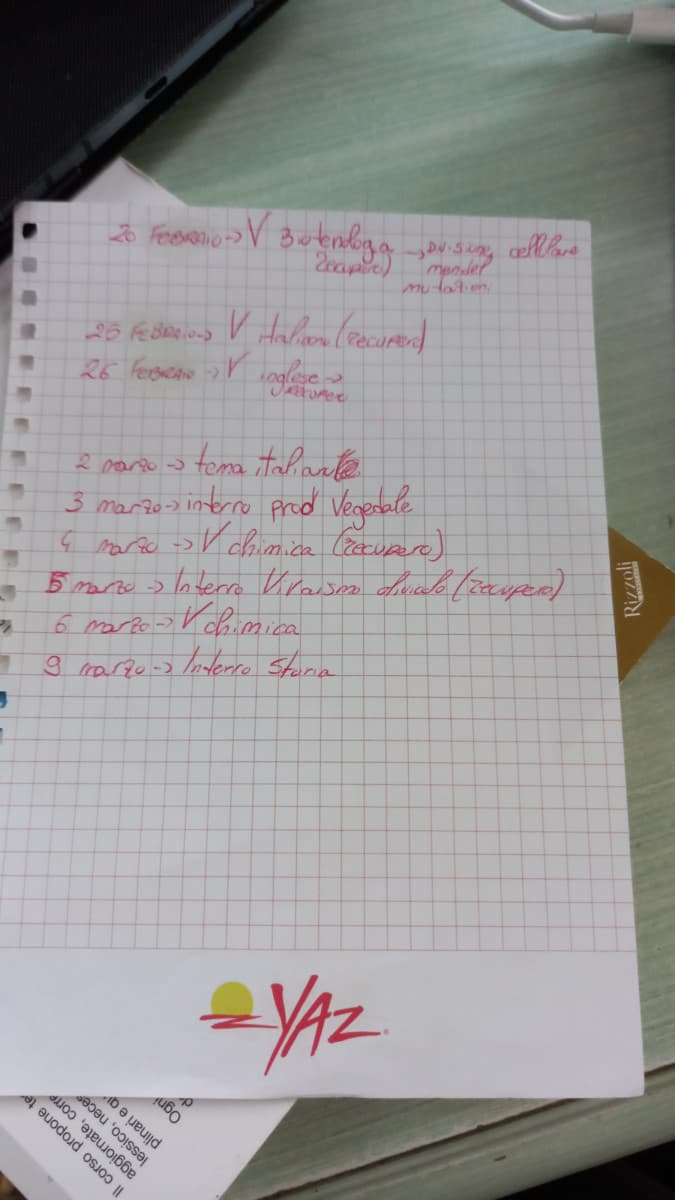 20 FEBBRAIO -> V Biotenologa -> Divisione cellulare
(recupero) mendel
mutazioni
25 FEBBRAIO -> V italiano (recupero)
26 FEBBRAIO -> V inglese ->
recupero
2 marzo -> tema italiano
3 marzo -> interro prod Vegedale
4 marzo -> V chimica (recupero)
5 marzo -> Interro (recupero)
6 marzo -> V chimica
9 marzo -> Interro Storia
YAZ
Rizzoli
Il corso propone
aggiornate,
lessico,
plinari e
Ogni